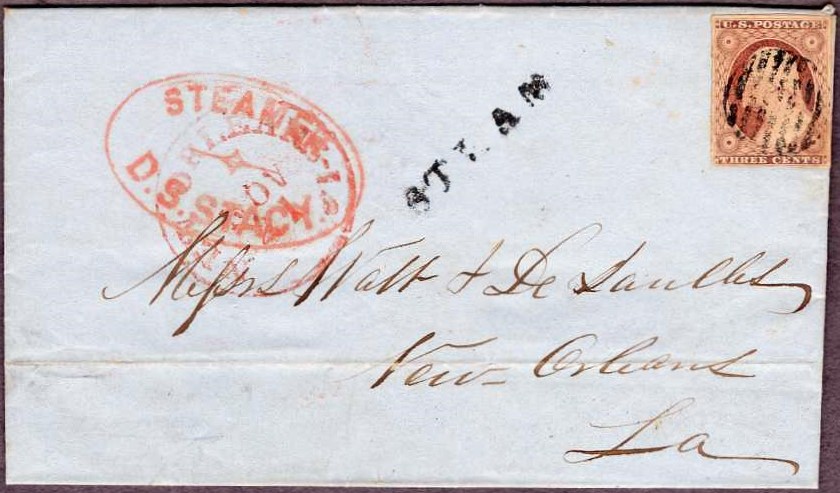 U.S. POSTAGE
THREE CENTS
STEAM
STEAMER
D.S. STACY.
Messrs Watt & De Saulles
New-Orleans
La